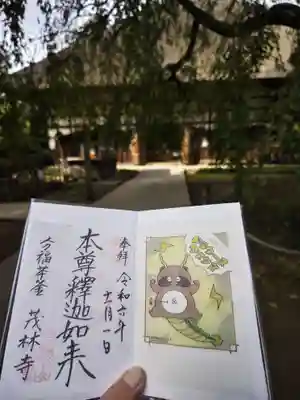 奉拝 令和六年
十一月一日
本尊釋迦如来
分福茶釜 茂林寺